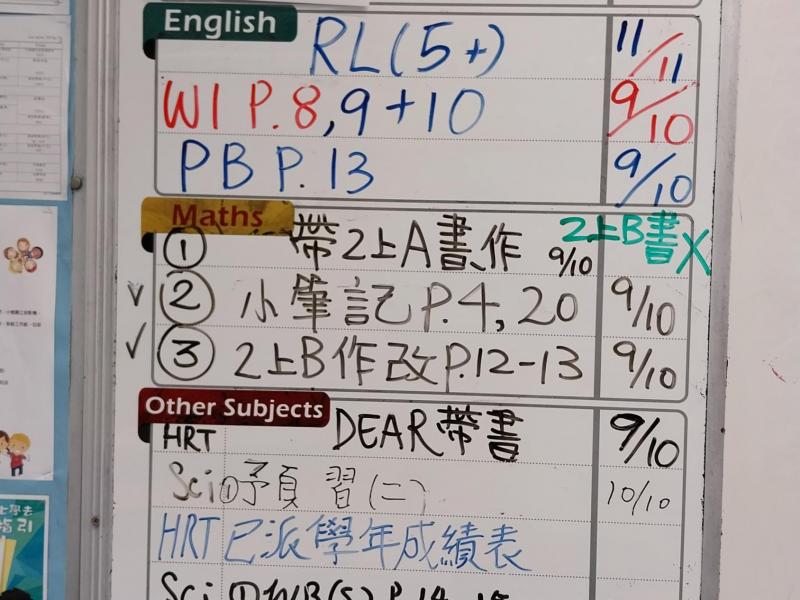 English
RL(5+) 11/11
WI P.8,9+10 9/10
PB P.13 9/10
Maths
① 帶2上A書作 9/10 2上B書X
✓ ② 小筆記 P.4,20 9/10
✓ ③ 2上B作改P.12-13 9/10
Other Subjects
HRT DEAR帶書 9/10
Sci ① 預習(二) 10/10
HRT 已派學年成績表
指引